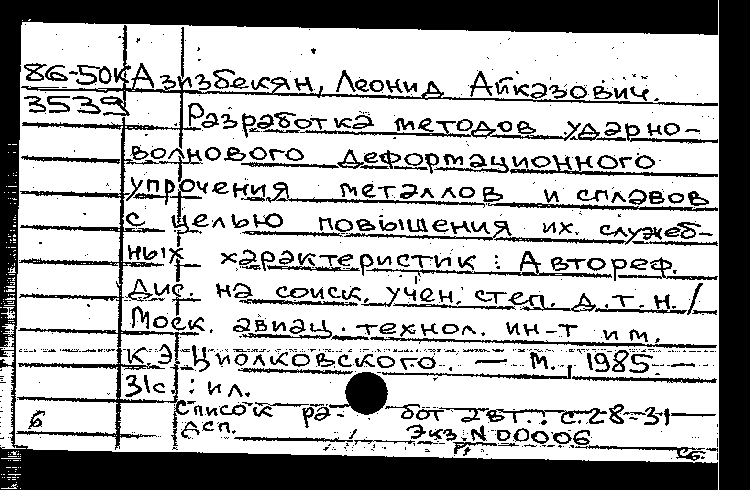 86-50к Азизбекян, Леонид Айказович.
3539 Разработка методов ударно-
волнового деформационного
упрочения металлов и сплавов
с целью повышения их служеб-
ных характеристик : Автореф.
дис. на соиск. учен. степ. д.т.н. /
Моск. авиац. технол. ин-т им.
К.Э. Циолковского. — М., 1985. —
31с. : ил.
Список ра- бот авт.: с.28-31
6 дсп. Экз. N 00006
сб.